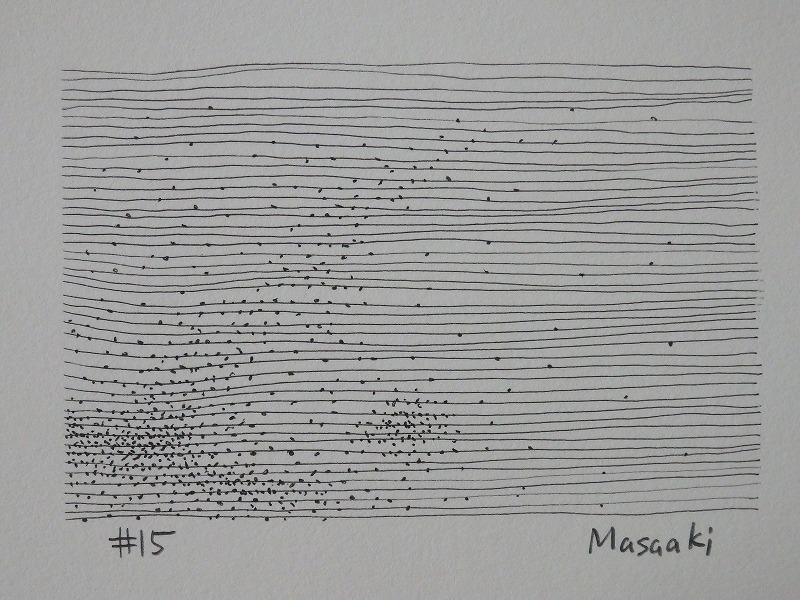 #15 Masaaki